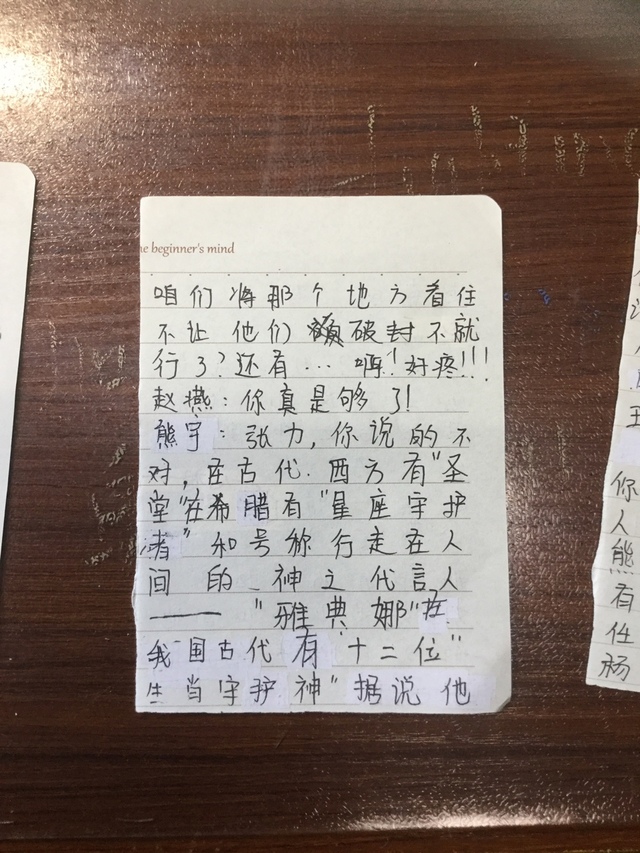 he beginner's mind
咱们将那个地方看住
不让他们破封不就
行了?还有…啊!好疼!!!
赵燕:你真是够了!
熊宇:张力,你说的不
对,在古代.西方有"圣
堂"在希腊有"星座守护
者"和号称行走在人
间的神之代言人
——"雅典娜"在
我国古代有"十二位"
生肖守护神"据说他
王
你
人
熊
有
任
杨